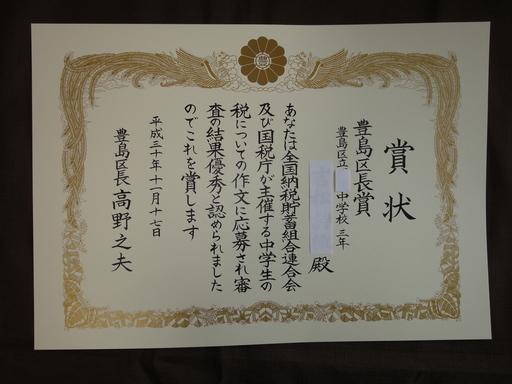 賞状
豊島区長賞
豊島区立 中学校 三年
殿
あなたは全国納税貯蓄組合連合会
及び国税庁が主催する中学生の
税についての作文に応募され審
査の結果優秀と認められました
のでこれを賞します
平成三十年十一月十七日
豊島区長 高野之夫